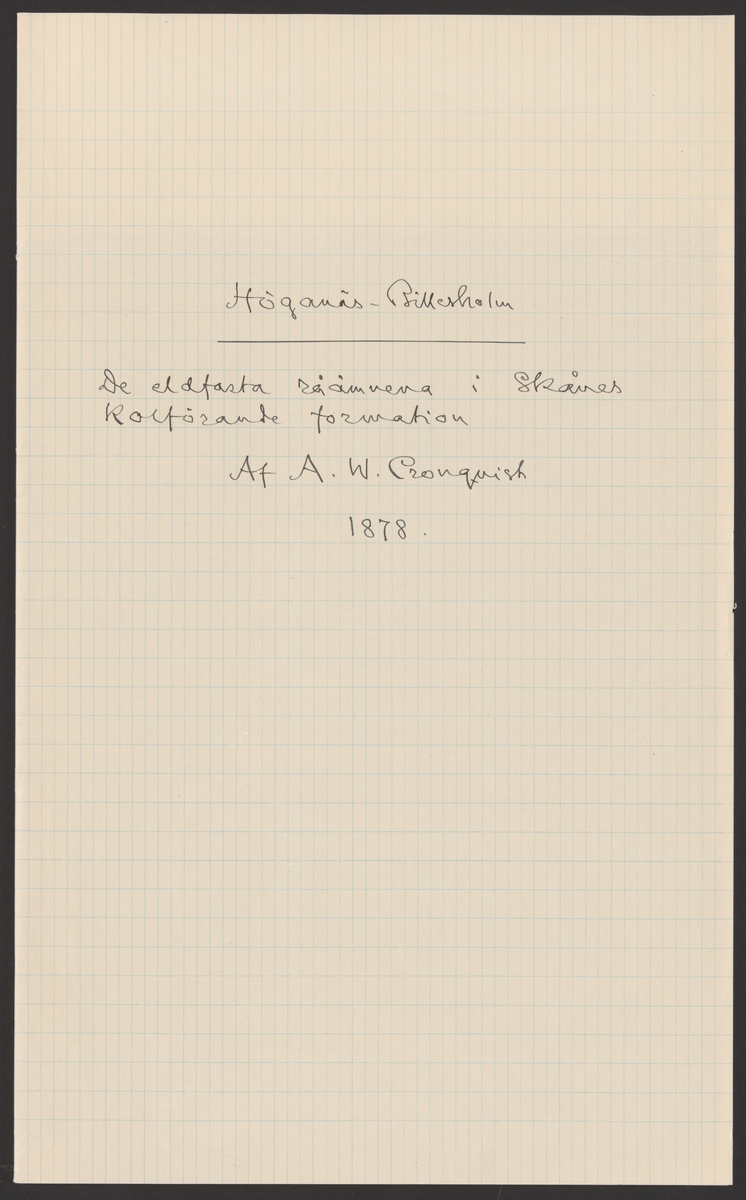 Höganäs-Billesholm
De eldfasta råämnena i Skånes
kolförande formation
Af A. W. Cronquist
1878.